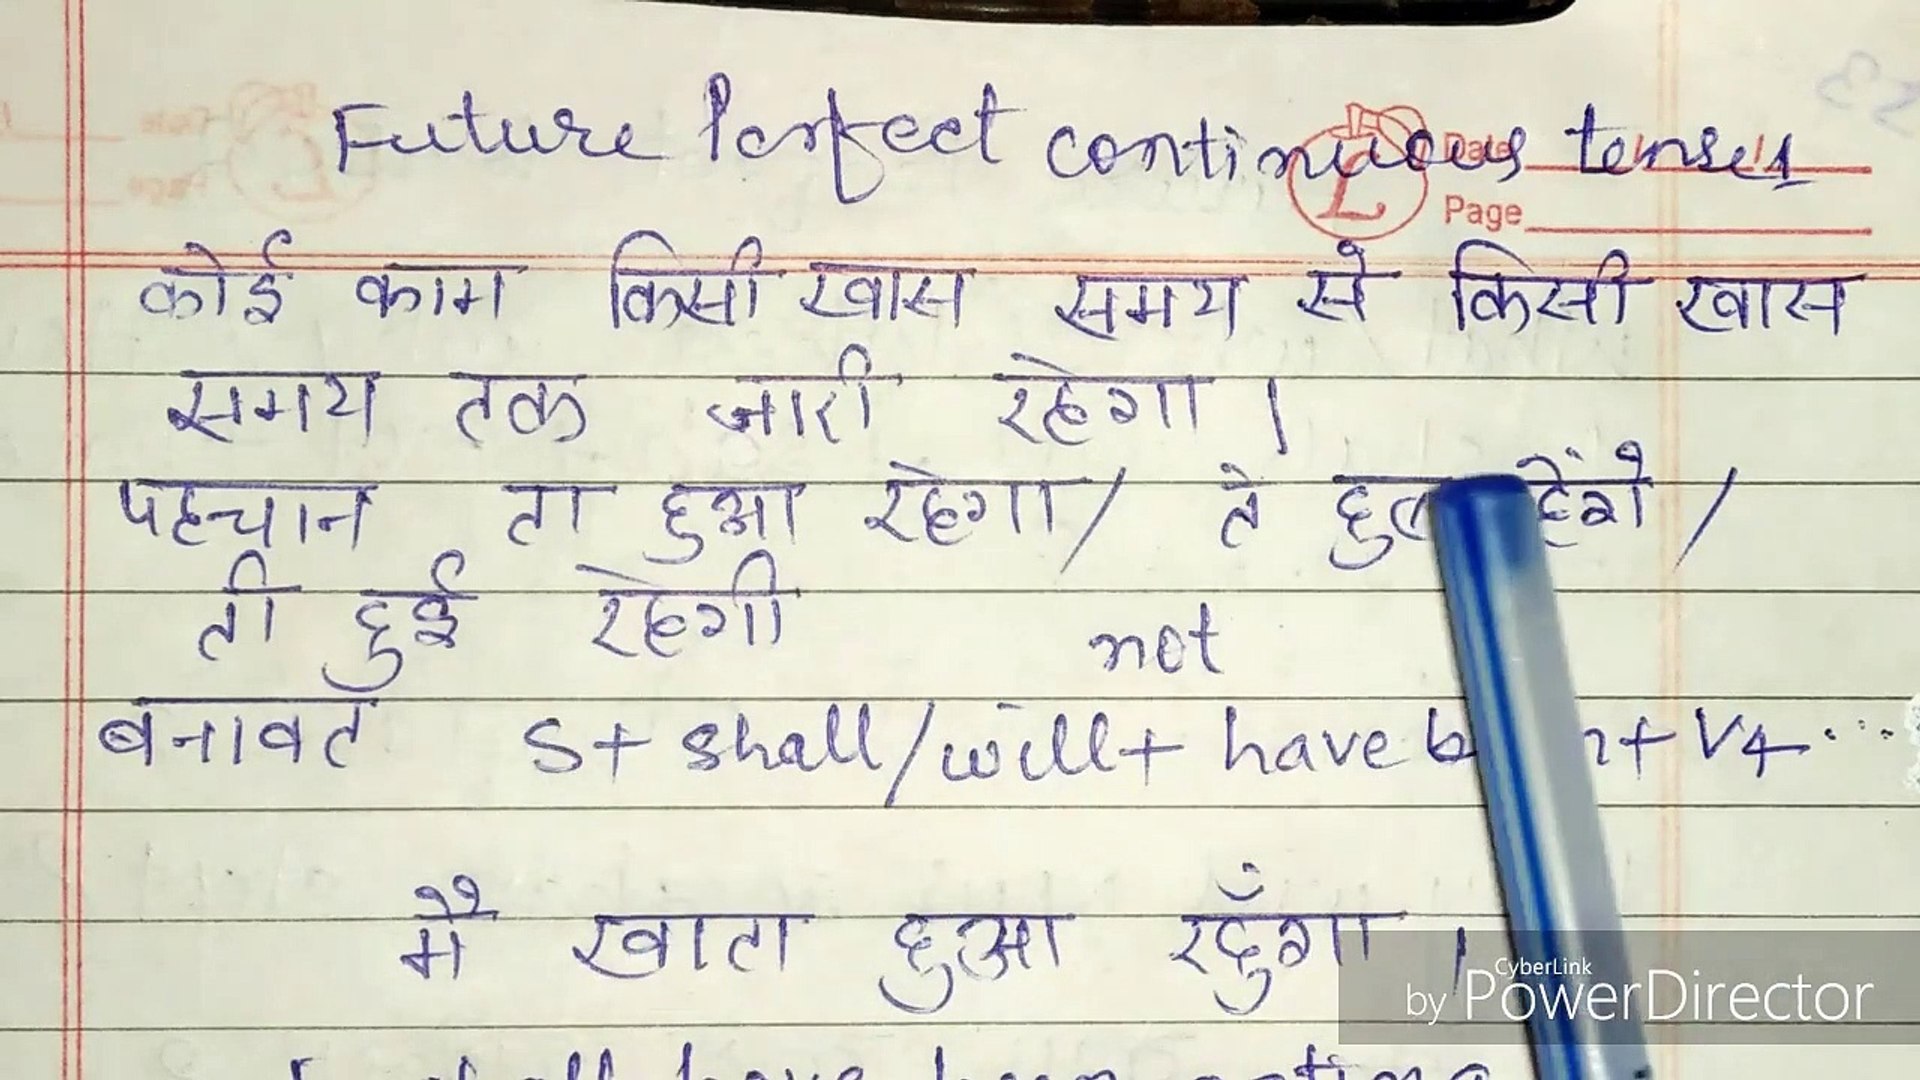 Future Perfect continuous tenses
Date
Page
कोई काम किसी खास समय से किसी खास
समय तक जारी रहेगा ।
पहचान ता हुआ रहेगा/ ते हुए रहेंगे /
ती हुई रहेगी
not
बनावट S+ shall/will+ have been+ V4...
मैं खाता हुआ रहुँगा ।
CyberLink
by PowerDirector
I shall have been eating